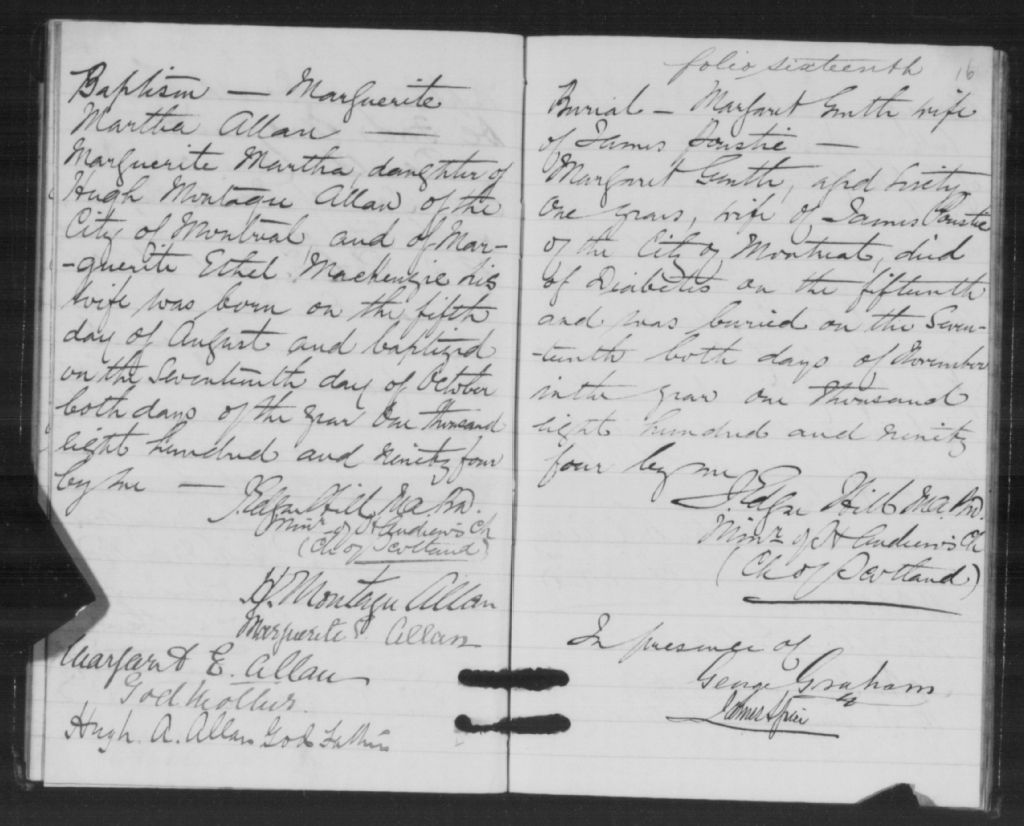 Baptism — Marguerite
Martha Allan —
Marguerite Martha, daughter of
Hugh Montagu Allan, of the
City of Montreal, and of Mar-
-guerite Ethel Mackenzie his
wife was born on the fifth
day of August and baptized
on the Seventeenth day of October
both days of the year One thousand
eight hundred and ninety four
by me —
J. Edgar Hill, M.A. B.D.
Minr of St Andrew's Ch
(Ch. of Scotland)
H. Montagu Allan
Marguerite E. Allan
Margaret E. Allan
God Mother.
Hugh. A. Allan God Father
folio sixteenth
16
Burial — Margaret wife
of James —
Margaret aged sixty
One years, wife of James
of the City of Montreal, died
of Diabetes on the fifteenth
and was buried on the Seven-
-teenth both days of November
in the year one thousand
eight hundred and ninety
four by me
J. Edgar Hill M.A. B.D.
Minr of St Andrew's Ch
(Ch of Scotland)
In presence of
George Graham
James Speir